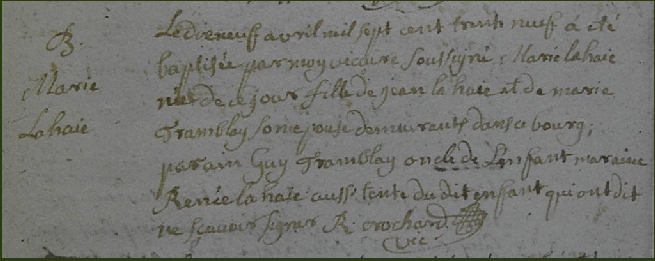 B.
Marie
Lahaie
Le dix neuf avril mil sept cent trente neuf a eté
baptisée par moy vicaire soussigné, Marie lahaie
née de ce jour fille de jean la haie et de marie
Tramblay son epouse demeurants dans ce bourg,
parain Guy Tramblay oncle de L'enfant maraine
Renée la haie aussi tente du dit enfant qui ont dit
ne sçavoir signer R. crochard
vic.